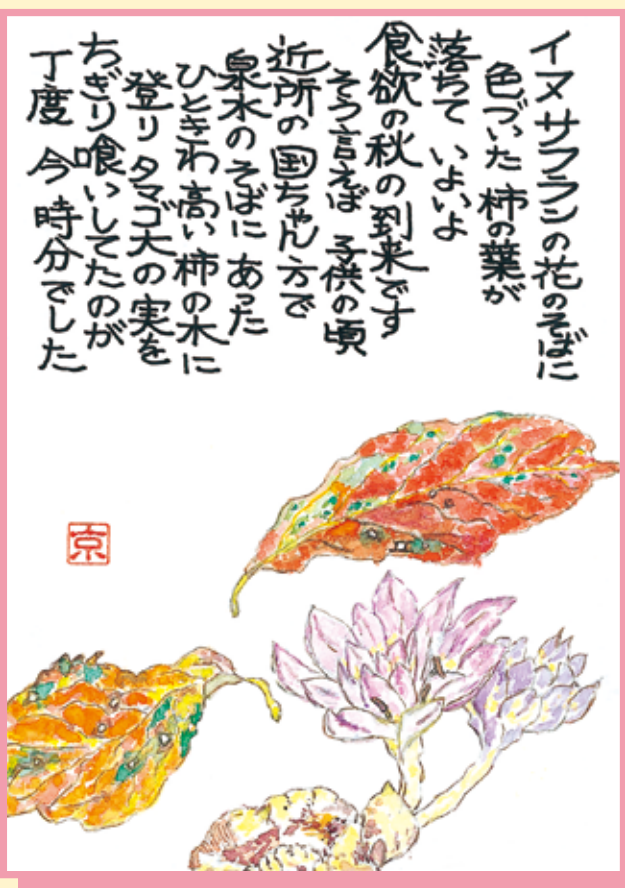 イヌサフランの花のそばに
色づいた柿の葉が
落ちて いよいよ
食欲の秋の到来です
そう言えば 子供の頃
近所の国ちゃん方で
泉水のそばに あった
ひときわ高い柿の木に
登り タマゴ大の実を
ちぎり喰いしてたのが
丁度 今時分でした
京